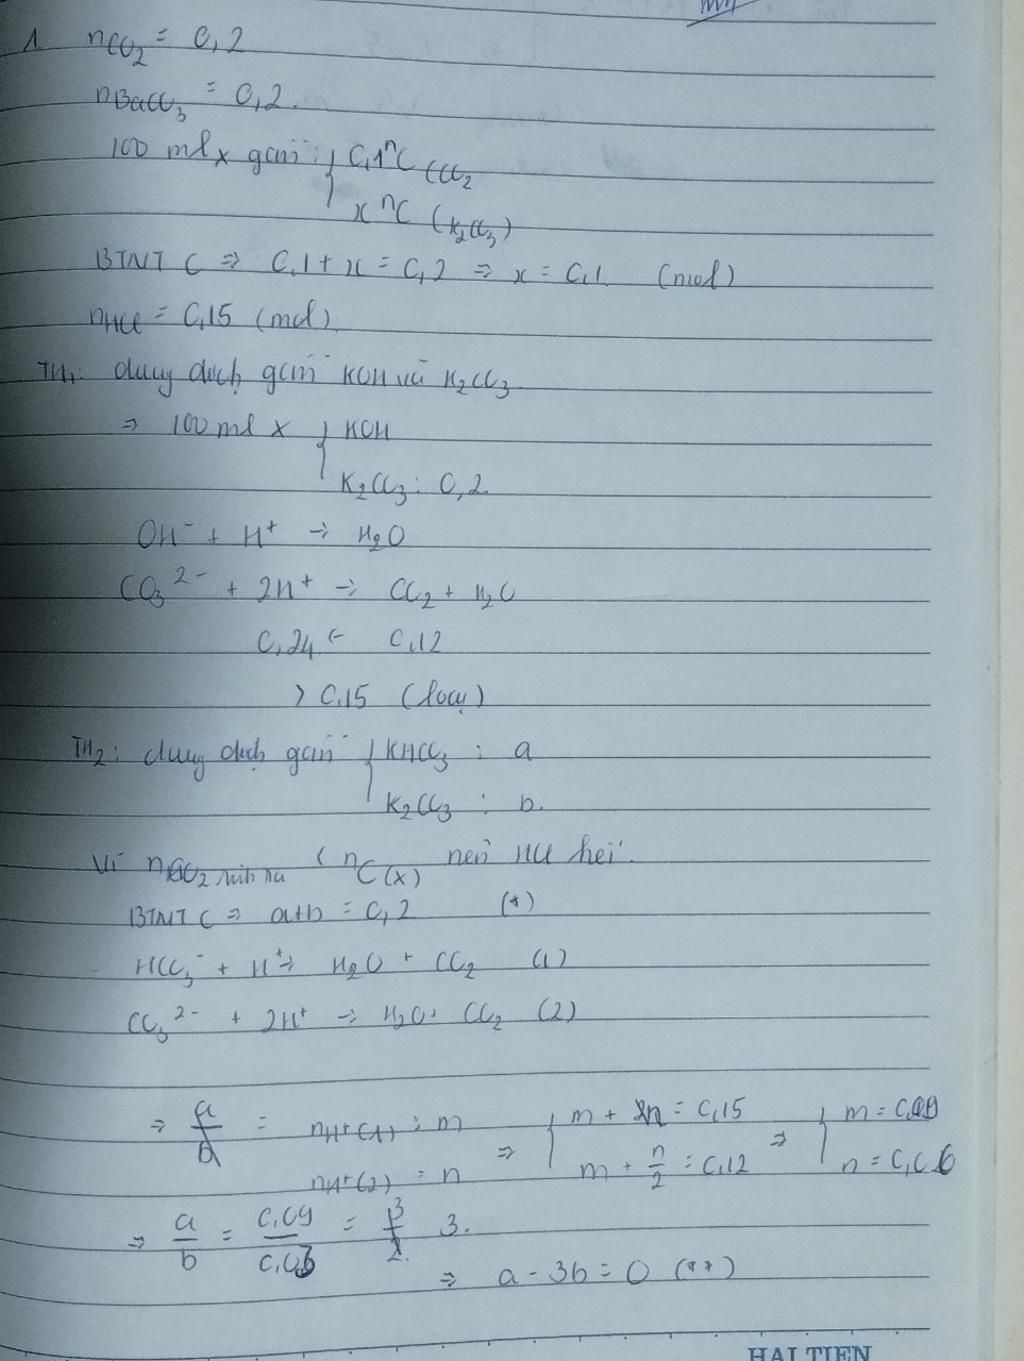 1. nCO2 = 0,2
nBaCO3 = 0,2.
100 ml x gồm: { 0,1 nC (CO2
x nC (K2CO3)
BTNT C ⇒ 0,1 + x = 0,2 ⇒ x = 0,1 (mol)
nHCl = 0,15 (mol)
TH1: dung dịch gồm KOH và K2CO3
⇒ 100 ml x { KOH
K2CO3: 0,2.
OH⁻ + H⁺ → H2O
CO3²⁻ + 2H⁺ → CO2 + H2O
0,24 ← 0,12
> 0,15 (loại)
TH2: dung dịch gồm { KHCO3 : a
K2CO3 : b.
Vì nCO2 sinh ra < nC(x) nên HCl hết.
BTNT C ⇒ a+b = 0,2 (*)
HCO3⁻ + H⁺ → H2O + CO2 (1)
CO3²⁻ + 2H⁺ → H2O + CO2 (2)
⇒ a/b = nH⁺(1) : m ⇒ { m + n = 0,15 ⇒ { m = 0,09
nH⁺(2) = n m + n/2 = 0,12 n = 0,06
⇒ a/b = 0,09/0,03 = 3.
⇒ a - 3b = 0 (**)
HẢI TIẾN